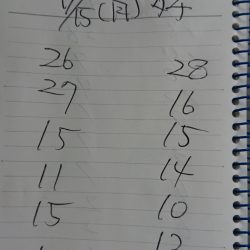 /15(月)
26 28
27 16
15 15
11 14
15 10
12